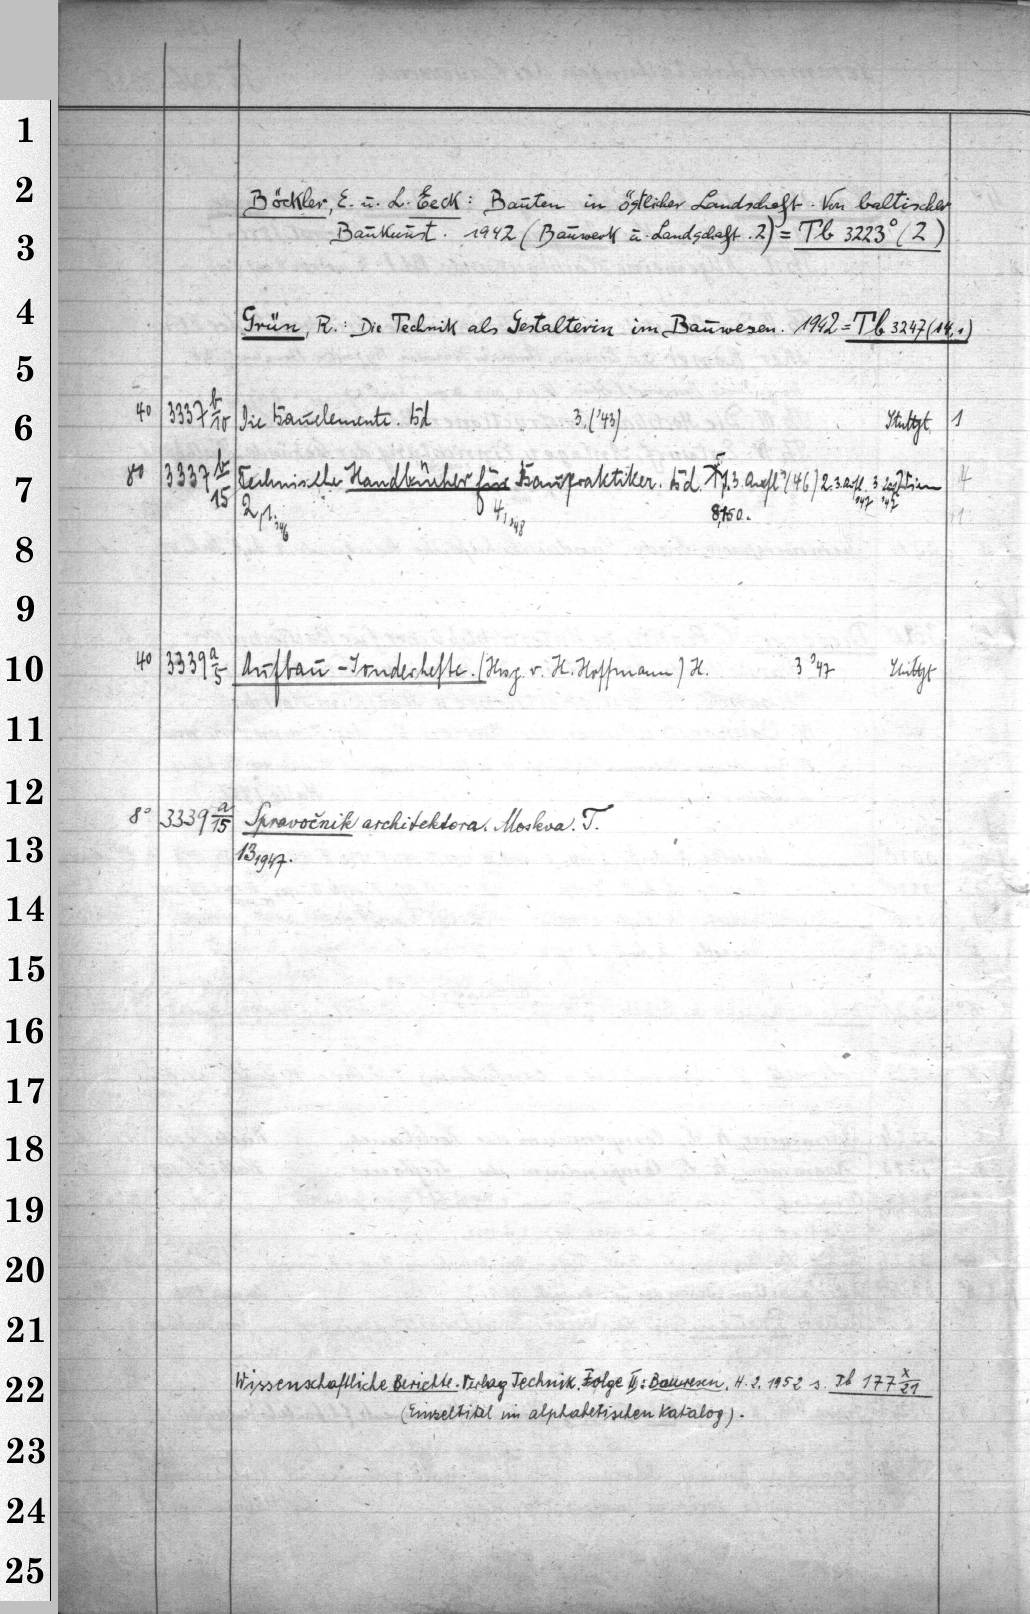 1
2
Böckler, E. u. L. Eeck: Bauten in östlicher Landschaft. Von baltischer
3
Baukunst. 1942 (Bauwerk u. Landschaft. 2) = Tb 3223° (2)
4
Grün, R.: Die Technik als Gestalterin im Bauwesen. 1942 = Tb 3247 (14,1)
5
6
4o 3337 b/10 Die Bauelemente. Bd 3. ('43) Stuttgt. 1
7
8o 3337 b/15 Technische Handbücher für Baupraktiker. Bd. 1,3. Aufl. ('46) 2. 3. Aufl. '47 3 '47 Wien 4
2,1. '46 4, '48
8
9
10
4o 3339 a/5 Aufbau-Sonderhefte. (Hrsg. v. H. Hoffmann) H. 3 '47 Stuttgt
11
12
8° 3339 a/15 Spravočnik architektora. Moskva. T.
13
13 1947.
14
15
16
17
18
19
20
21
22
Wissenschaftliche Berichte. Verlag Technik. Folge II: Bauwesen. H. 2. 1952 s. Tb 177 x/21
(Einzeltitel im alphabetischen Katalog).
23
24
25